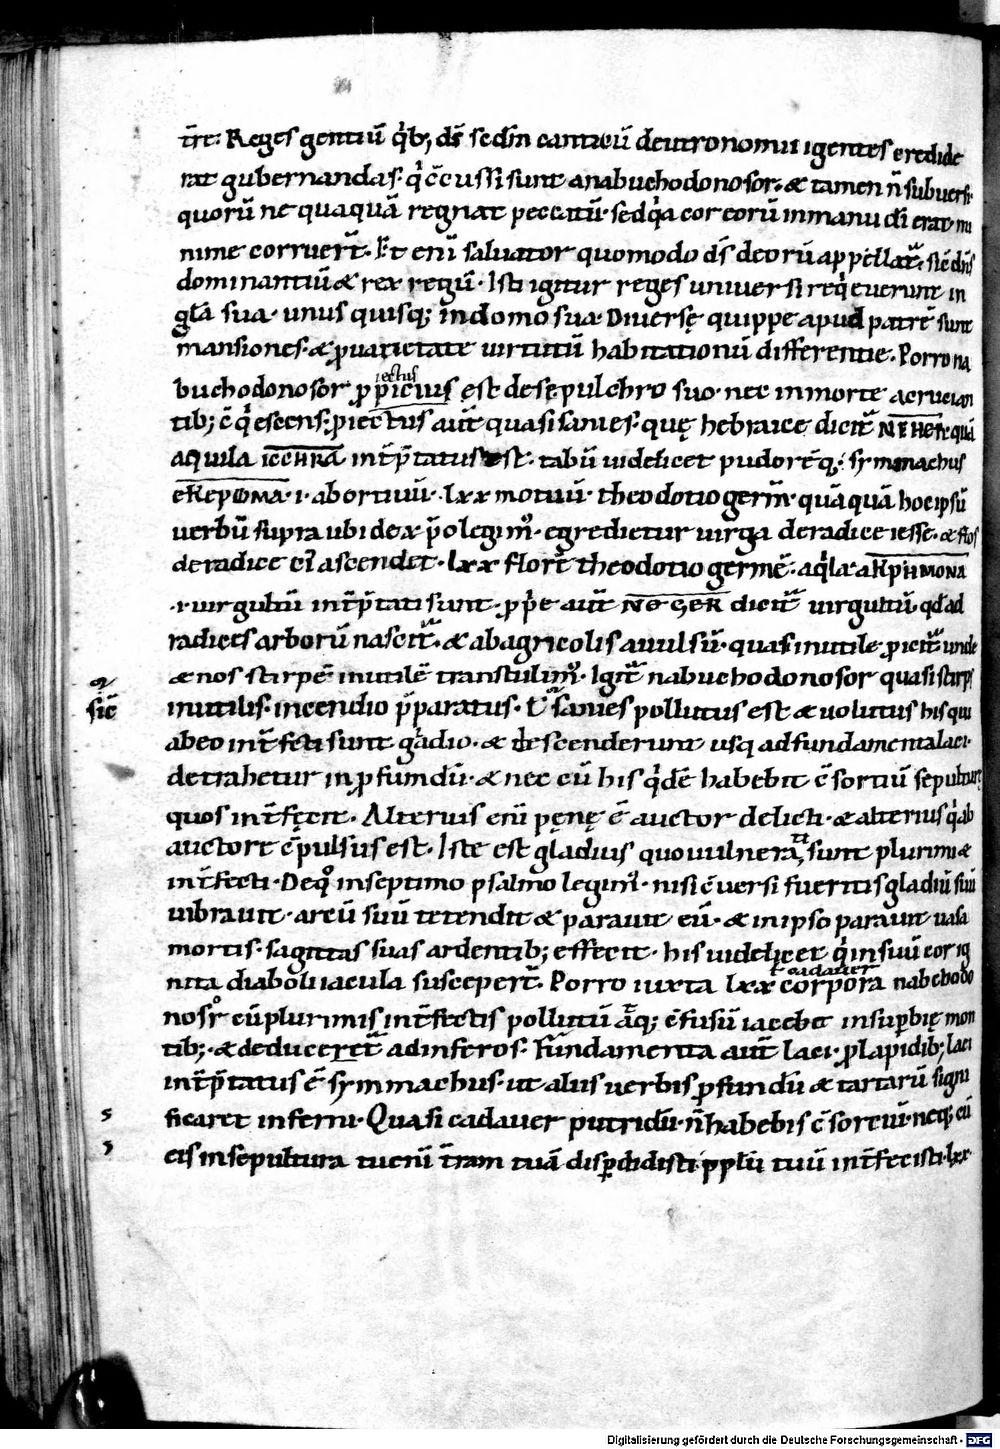 tr̄e: Reges gentiū q̇b; ds̄ sed̄m canticū deutronomii igentes credide
rat gubernandas. q̇ c̄cussi sunt anabuchodonosor. & tamen n̄ subuersi.
quorū ne quaquā regnat peccatū. sed q̇a cor eorū in manu dī erat. mi
nime corruer̄t. Et enī saluator quomodo ds̄ deorū appellat̄. sic dn̄s
dominantiū & rex regū. Isti igitur reges uniuersi req̇euerunt in
gl̄a sua. unus quisq; in domo sua Diuersę quippe apud patrē sunt
mansiones. & ꝓ uarietate uirtutū habitationū differentie. Porro na
buchodonosor est de sepulchro suo. nec in morte acrucian
tib; c̄ q̇escens. ꝓiectus aut̄ quasi sanies. quę hebraice dicit̄ quā
aquila int̄p̄tatus est. tabū uidelicet pudorē q; symmachus
.i. abortiuū. lxx motuū. theodotio germ̄. quā quā hoc ipsū
uerbū supra ubi de x p̄o legim̄. egredietur uirga de radice iesse. & flos
de radice ei ascendet. lxx flor̄t theodotio germē. aq̇la
.i. uirgultū int̄p̄tati sunt. ꝓp̄e aut̄ dicit̄ uirgultū. qd̄ ad
radices arborū nascit̄. & ab agricolis auulsū. quasi inutile ꝓicit̄ unde
& nos stirpē inutilē transtulim̄. Igit̄ nabuchodonosor quasi stirps
inutilis. incendio p̄paratus. ł sanies pollutus est & uolutus his qui
abeo int̄fecti sunt gladio. & descenderunt usq ad fundamenta laci.
detrahetur in ꝓfundū. & nec cū his q̇dē habebit c̄sortiū sepulturę
quos int̄fęcit. Alterius enī pęnę ē auctor delicti. & alterius q̇ ab
auctore c̄pulsus est. Iste est gladius quo uulnerati sunt plurimi &
int̄fecti. De q̄ in septimo psalmo legim̄. nisi c̄uersi fueritis gladiū suū
uibrauit. arcū suū tetendit & parauit eū. & in ipso parauit uasa
mortis. sagittas suas ardentib; effecit. his uidelicet q̇ in suū cor ig
nita diaboli iacula susceper̄t. Porro iuxta lxx corpora ł cadauer nabchodo
nosr̄ cū plurimis int̄fectis pollutū aq; c̄fusū iacebit in supbię mon
tib;. & deduceret̄ ad inferos. Fundamenta aut̄ laci. ꝓ lapidib; laci
int̄p̄tatus ē symmachus. ut aliis uerbis ꝓfundū & tartarū signi
ficaret inferni. Quasi cadauer putridū. n̄ habebis c̄sortiū. neq; cū
eis in sepultura tu enī tr̄am tuā disp̱didisti. ppl̄ū tuū int̄fecisti. lxx